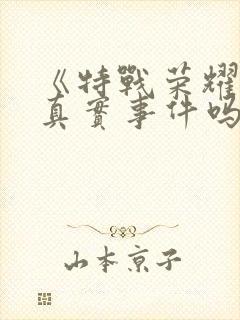 《特戰荣耀
真實事件吗
山本京子